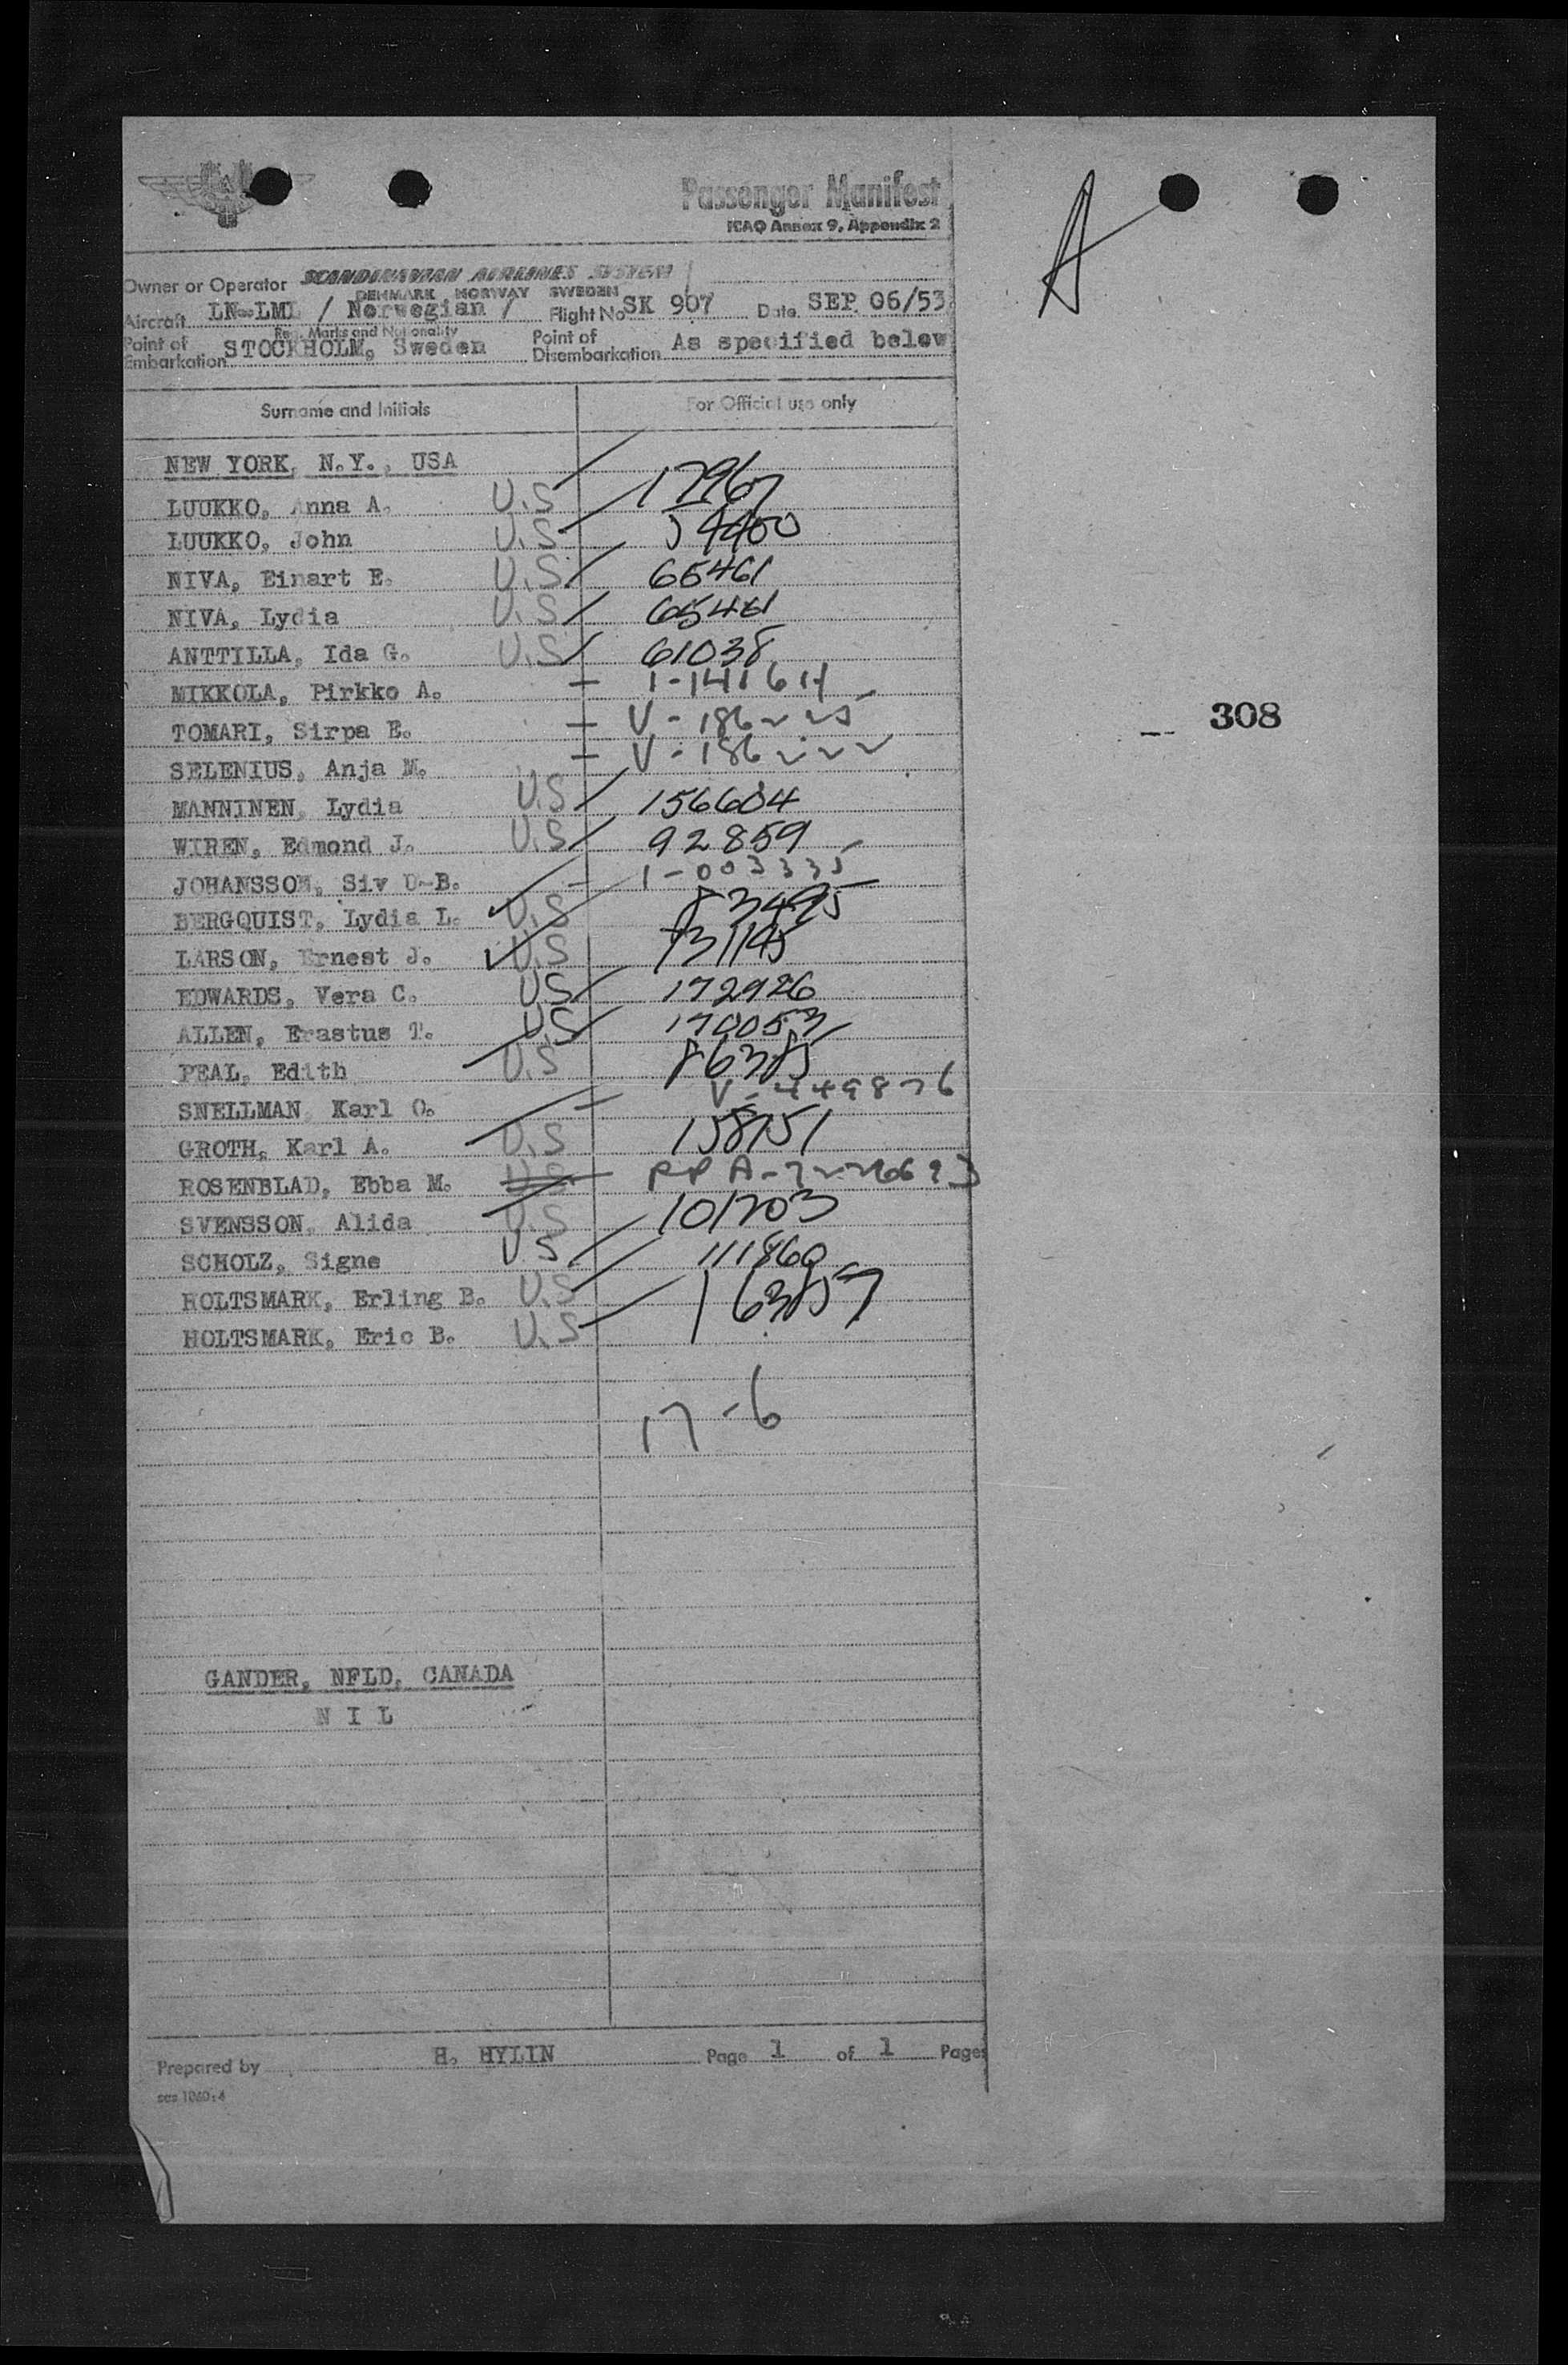 Passenger Manifest
ICAO Annex 9, Appendix 2
A
Owner or Operator SCANDINAVIAN AIRLINES SYSTEM
DENMARK NORWAY SWEDEN
Aircraft LN-LML / Norwegian / Flight No SK 907 Date SEP. 06/53
Reg. Marks and Nationality
Point of Embarkation STOCKHOLM, Sweden Point of Disembarkation As specified below
Surname and Initials For Official use only
NEW YORK, N.Y., USA
LUUKKO, Anna A. U.S 17967
LUUKKO, John U.S 54400
NIVA, Einart E. U.S 65461
NIVA, Lydia U.S 65461
ANTTILLA, Ida G. U.S 61038
MIKKOLA, Pirkko A. -
TOMARI, Sirpa E. - V-186225
308
SELENIUS, Anja M. - V-186222
MANNINEN, Lydia U.S 156604
WIREN, Edmond J. U.S 92859
JOHANSSON, Siv U-B. - 1-003335
BERGQUIST, Lydia L. U.S 83495
LARSON, Ernest J. U.S
EDWARDS, Vera C. US 172926
ALLEN, Erastus T. U.S 170053
PEAL, Edith U.S 86385
SNELLMAN, Karl O. - V-449876
GROTH, Karl A. U.S 158151
ROSENBLAD, Ebba M. US
SVENSSON, Alida U.S 101703
SCHOLZ, Signe U.S 111860
HOLTSMARK, Erling B. U.S 163857
HOLTSMARK, Eric B. U.S
17-6
GANDER, NFLD, CANADA
N I L
Prepared by H. HYLIN Page 1 of 1 Pages
sas 1060:4